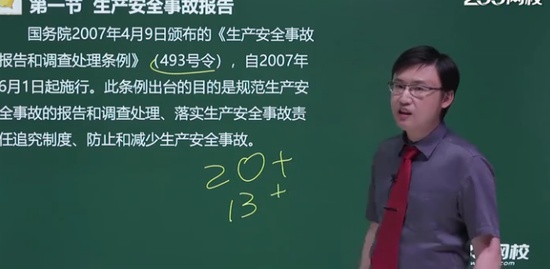 第一节 生产安全事故报告
国务院2007年4月9日颁布的《生产安全事故
报告和调查处理条例》(493号令)，自2007年
6月1日起施行。此条例出台的目的是规范生产安
全事故的报告和调查处理、落实生产安全事故责
任追究制度、防止和减少生产安全事故。
20+
13+
网校
网校